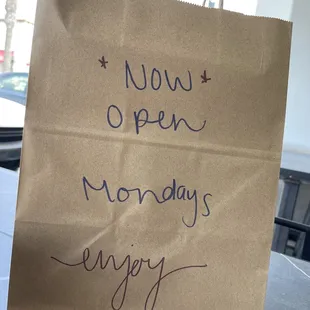 * NOW *
Open
Mondays
enjoy